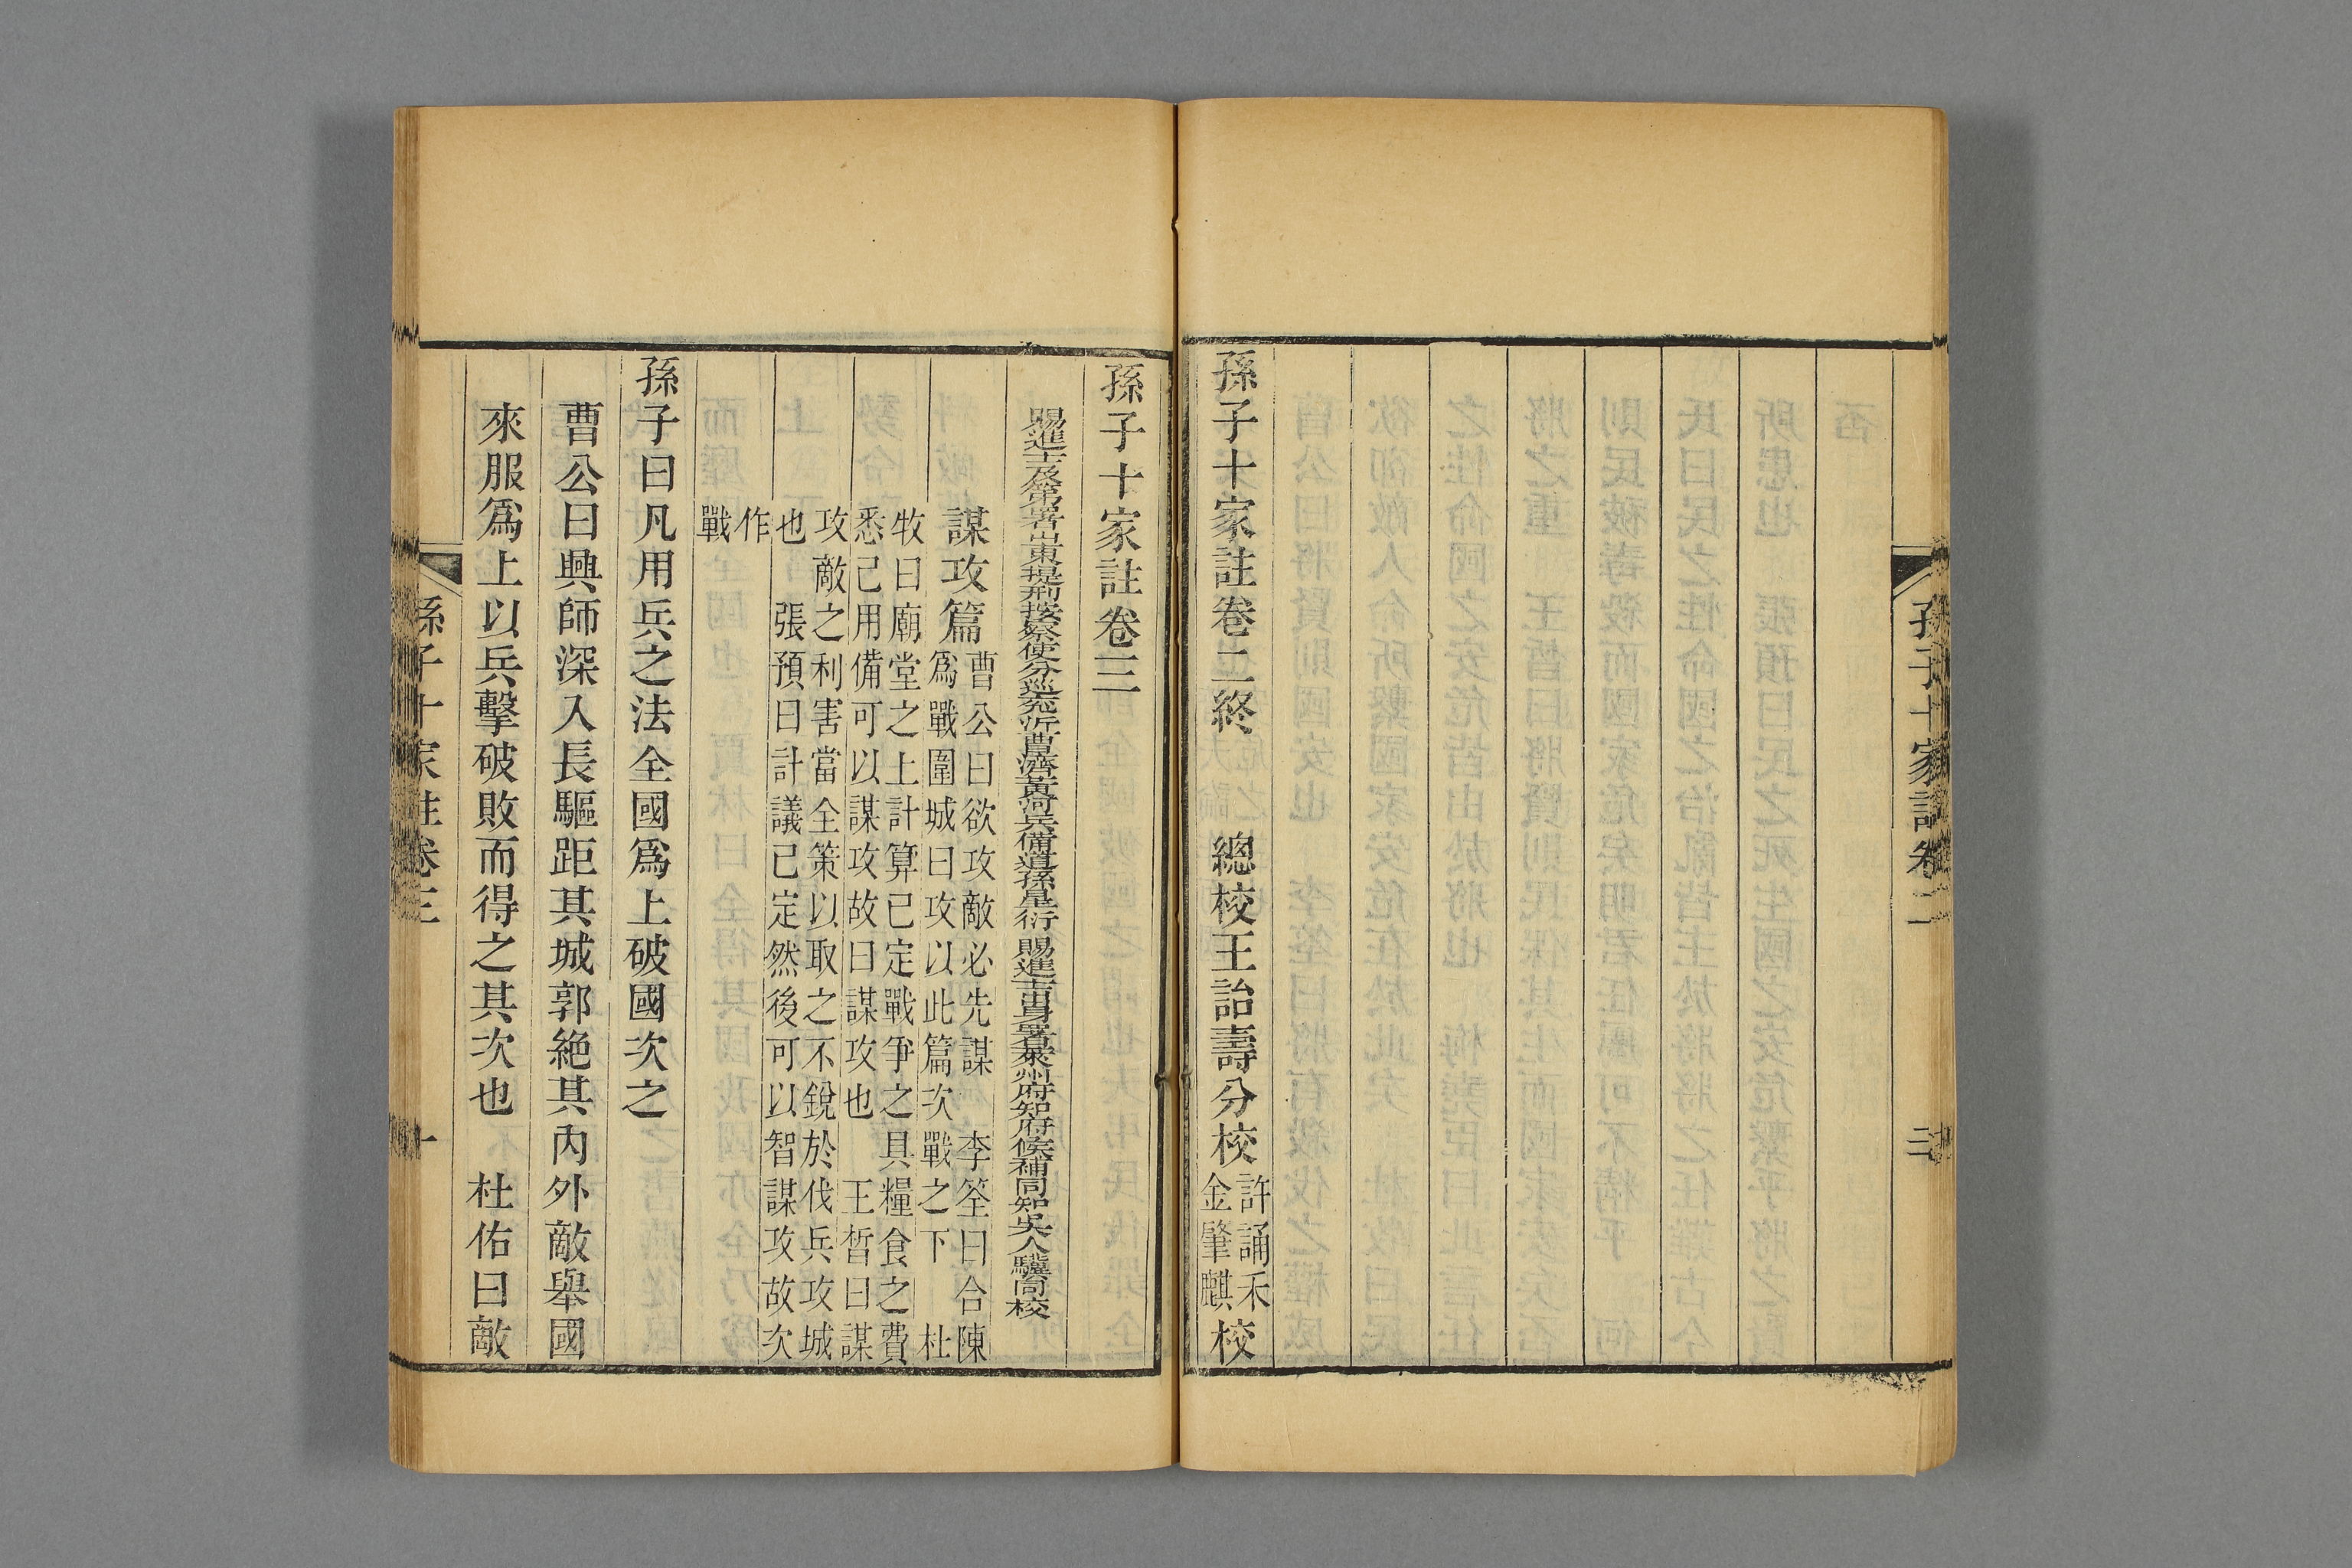 孫子十家註卷二
孫子十家註卷二終　總校王詒壽分校許誦禾金肇麒校
孫子十家註卷三
賜進士及第署山東提刑按察使分巡兗沂曹濟黃河兵備道孫星衍　賜進士出身署萊州府知府候補同知吳人驥同校
謀攻篇
曹公曰欲攻敵必先謀　李筌曰合陳
爲戰圍城曰攻以此篇次戰之下　杜
牧曰廟堂之上計算已定戰爭之具糧食之費
悉已用備可以謀攻故曰謀攻也　王晳曰謀
攻敵之利害當全策以取之不銳於伐兵攻城
也　張預曰計議已定然後可以智謀攻故次
作
戰
孫子曰凡用兵之法全國爲上破國次之
曹公曰興師深入長驅距其城郭絶其內外敵舉國
來服爲上以兵擊破敗而得之其次也　杜佑曰敵
孫子十家註卷三　一